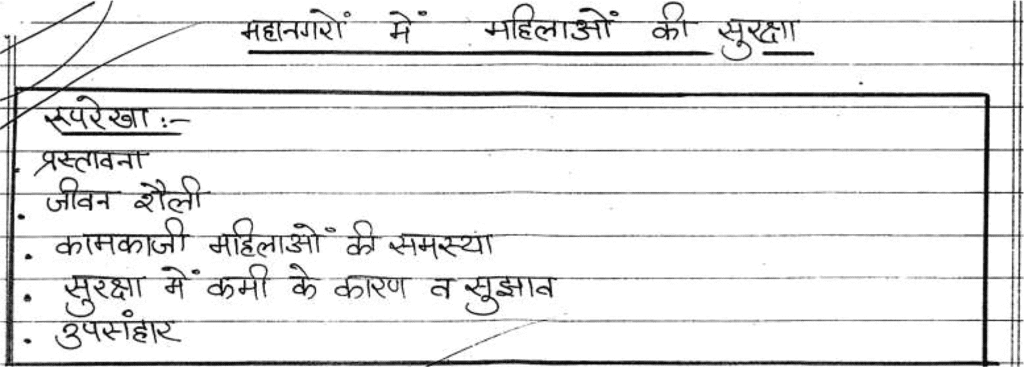 महानगरों में महिलाओं की सुरक्षा
रूपरेखा :-
. प्रस्तावना
. जीवन शैली
. कामकाजी महिलाओं की समस्या
. सुरक्षा में कमी के कारण व सुझाव
. उपसंहार